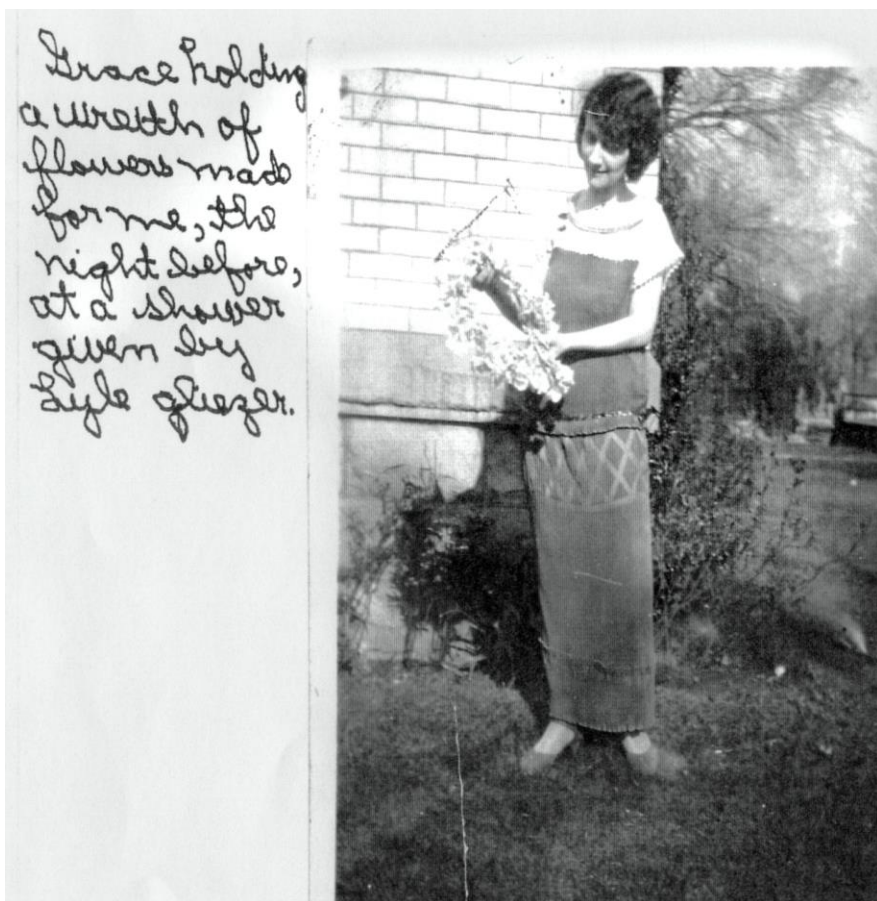 Grace holding
a wreath of
flowers made
for me, the
night before,
at a shower
given by
Lyle